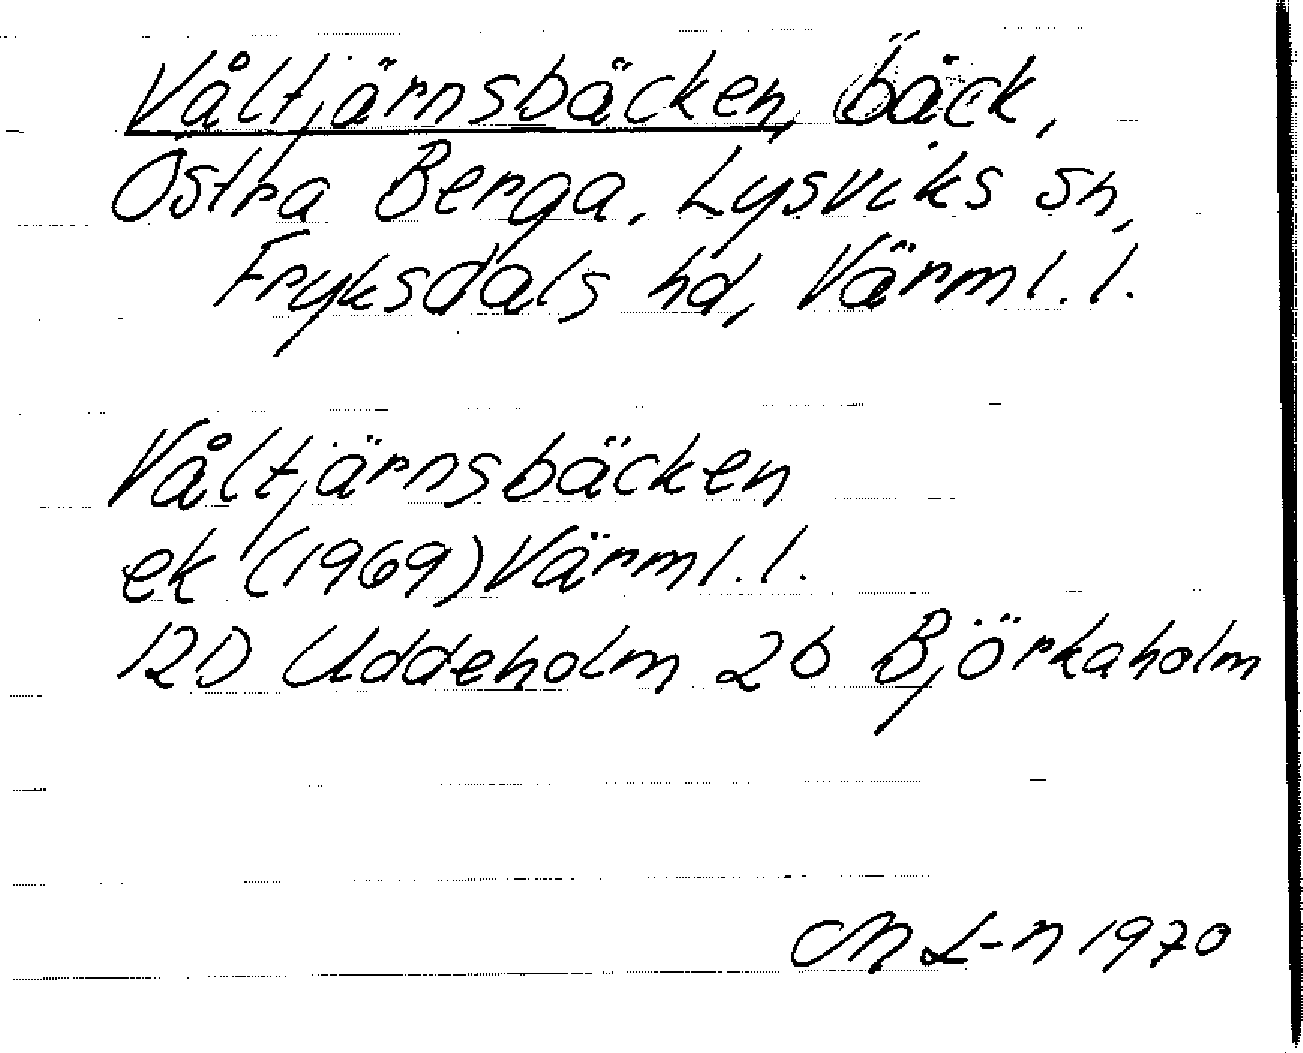 Våltjärnsbäcken, bäck,
Östra Berga, Lysviks sn,
Fryksdals hd, Värml. l.
Våltjärnsbäcken
ek (1969) Värml. l.
12D Uddeholm 2b Björkaholm
M L-n 1970